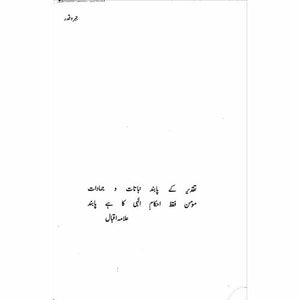 جبر و قدر
تقدیر کے پابند نباتات و جمادات
مومن فقط احکام الٰہی کا ہے پابند
علامہ اقبال